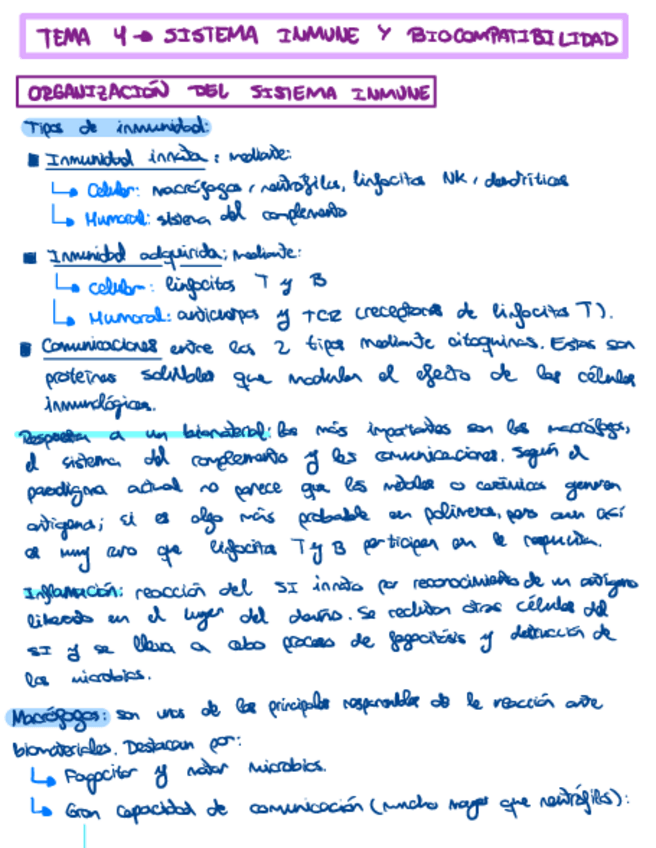 TEMA 4 → SISTEMA INMUNE Y BIOCOMPATIBILIDAD
ORGANIZACIÓN DEL SISTEMA INMUNE
Tipos de inmunidad:
Inmunidad innata: mediante:
Celular: macrófagos, neutrófilos, linfocitos NK, dendríticas
Humoral: sistema del complemento
Inmunidad adquirida; mediante:
Celular: linfocitos T y B
Humoral: anticuerpos y TCR (receptores de linfocitos T).
Comunicaciones entre los 2 tipos mediante citoquinas. Estas son
proteínas solubles que modulan el efecto de las células
inmunológicas.
Respuesta a un biomaterial: los más importantes son los macrófagos,
el sistema del complemento y las comunicaciones. Según el
paradigma actual no parece que los metales o cerámicos generen
antígenos; sí es algo más probable en polímeros, pero aun así
es muy raro que linfocitos T y B participen en la reacción.
Inflamación: reacción del SI innato por reconocimiento de un antígeno
liberado en el lugar del daño. Se reclutan otras células del
SI y se lleva a cabo proceso de fagocitosis y destrucción de
los microbios.
Macrófagos: son unos de los principales responsables de la reacción ante
biomateriales. Destacan por:
Fagocitar y matar microbios.
Gran capacidad de comunicación (mucho mayor que neutrófilos):